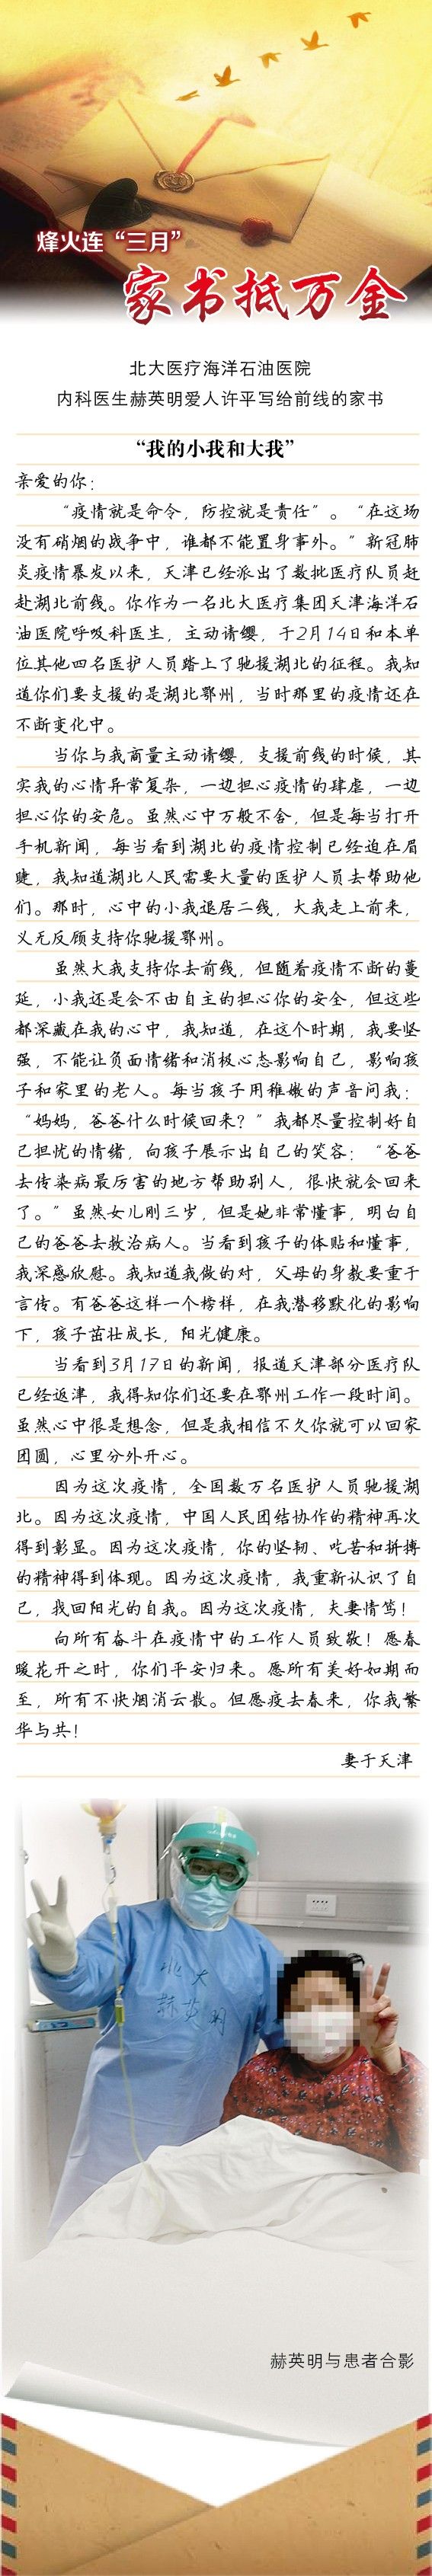 烽火连“三月”
家书抵万金
北大医疗海洋石油医院
内科医生赫英明爱人许平写给前线的家书
“我的小我和大我”
亲爱的你：
“疫情就是命令，防控就是责任”。“在这场
没有硝烟的战争中，谁都不能置身事外。”新冠肺
炎疫情暴发以来，天津已经派出了数批医疗队员赶
赴湖北前线。你作为一名北大医疗集团天津海洋石
油医院呼吸科医生，主动请缨，于2月14日和本单
位其他四名医护人员踏上了驰援湖北的征程。我知
道你们要支援的是湖北鄂州，当时那里的疫情还在
不断变化中。
当你与我商量主动请缨，支援前线的时候，其
实我的心情异常复杂，一边担心疫情的肆虐，一边
担心你的安危。虽然心中万般不舍，但是每当打开
手机新闻，每当看到湖北的疫情控制已经迫在眉
睫，我知道湖北人民需要大量的医护人员去帮助他
们。那时，心中的小我退居二线，大我走上前来，
义无反顾支持你驰援鄂州。
虽然大我支持你去前线，但随着疫情不断的蔓
延，小我还是会不由自主的担心你的安全，但这些
都深藏在我的心中，我知道，在这个时期，我要坚
强，不能让负面情绪和消极心态影响自己，影响孩
子和家里的老人。每当孩子用稚嫩的声音问我：
“妈妈，爸爸什么时候回来？”我都尽量控制好自
己担忧的情绪，向孩子展示出自己的笑容：“爸爸
去传染病最厉害的地方帮助别人，很快就会回来
了。”虽然女儿刚三岁，但是她非常懂事，明白自
己的爸爸去救治病人。当看到孩子的体贴和懂事，
我深感欣慰。我知道我做的对，父母的身教要重于
言传。有爸爸这样一个榜样，在我潜移默化的影响
下，孩子茁壮成长，阳光健康。
当看到3月17日的新闻，报道天津部分医疗队
已经返津，我得知你们还要在鄂州工作一段时间。
虽然心中很是想念，但是我相信不久你就可以回家
团圆，心里分外开心。
因为这次疫情，全国数万名医护人员驰援湖
北。因为这次疫情，中国人民团结协作的精神再次
得到彰显。因为这次疫情，你的坚韧、吃苦和拼搏
的精神得到体现。因为这次疫情，我重新认识了自
己，找回阳光的自我。因为这次疫情，夫妻情笃！
向所有奋斗在疫情中的工作人员致敬！愿春
暖花开之时，你们平安归来。愿所有美好如期而
至，所有不快烟消云散。但愿疫去春来，你我繁
华与共！
妻于天津
北大
赫英明
赫英明与患者合影